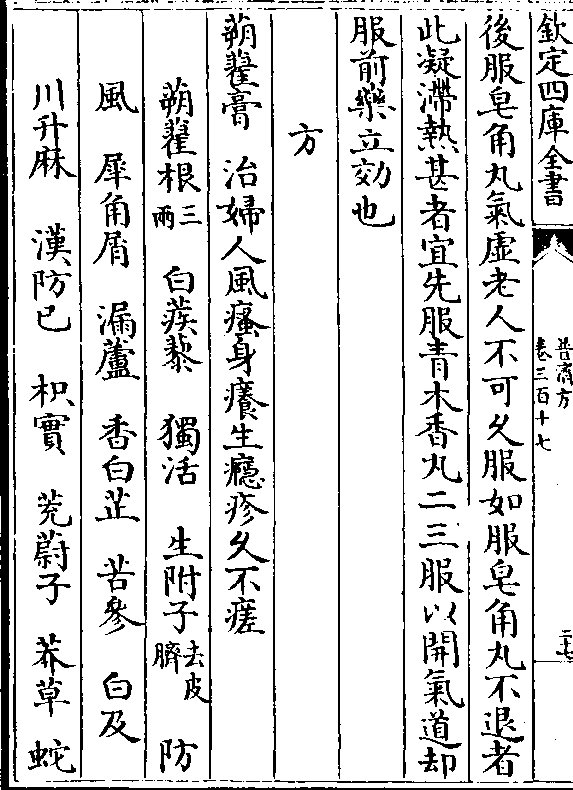 欽定四庫全書
普濟方
卷三百十七
二十七
後服皂角丸氣虛老人不可久服如服皂角丸不退者
此凝滯熱甚者宜先服青木香丸二三服以開氣道却
服前藥立効也
方
蒴藋膏　治婦人風瘙身癢生癮疹久不瘥
蒴藋根三兩　白蒺藜　獨活　生附子去皮臍　防
風　犀角屑　漏蘆　香白芷　苦參　白及
川升麻　漢防已　枳實　茺蔚子　莽草　蛇